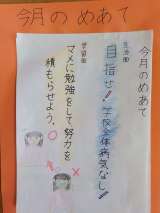 今月のめあて
今月のめあて
生活面
目指せ!学校全体病気なし!
学習面
マメに勉強をして努力を
積もらせよう。